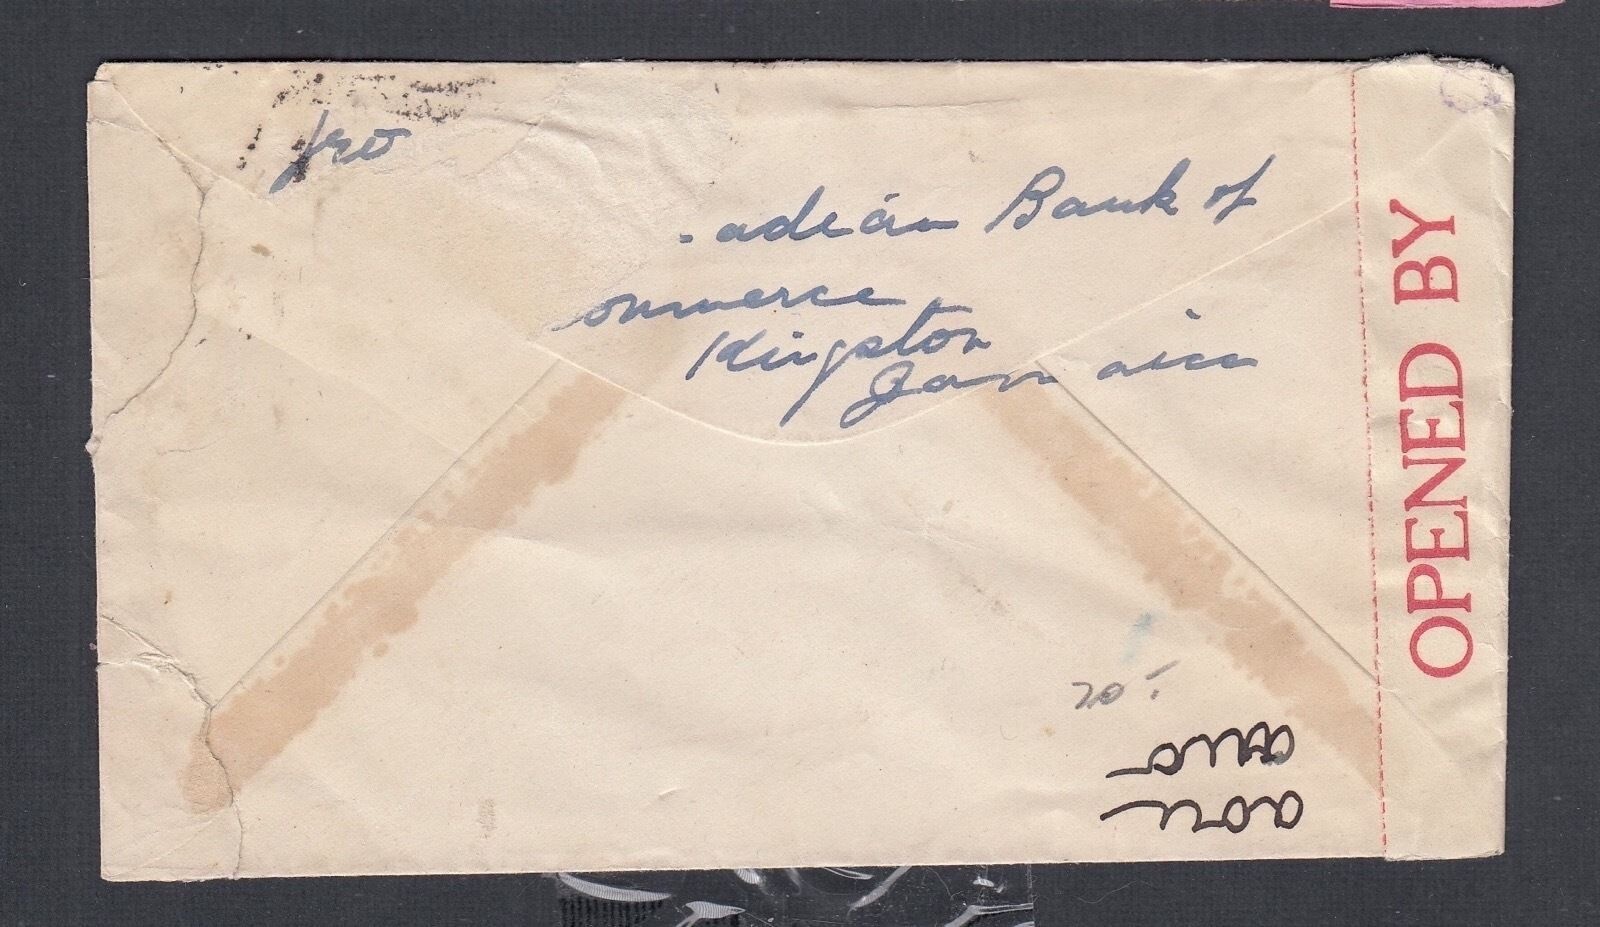 fro
adian Bank of
ommerce
Kingston
Jamaica
OPENED BY
20